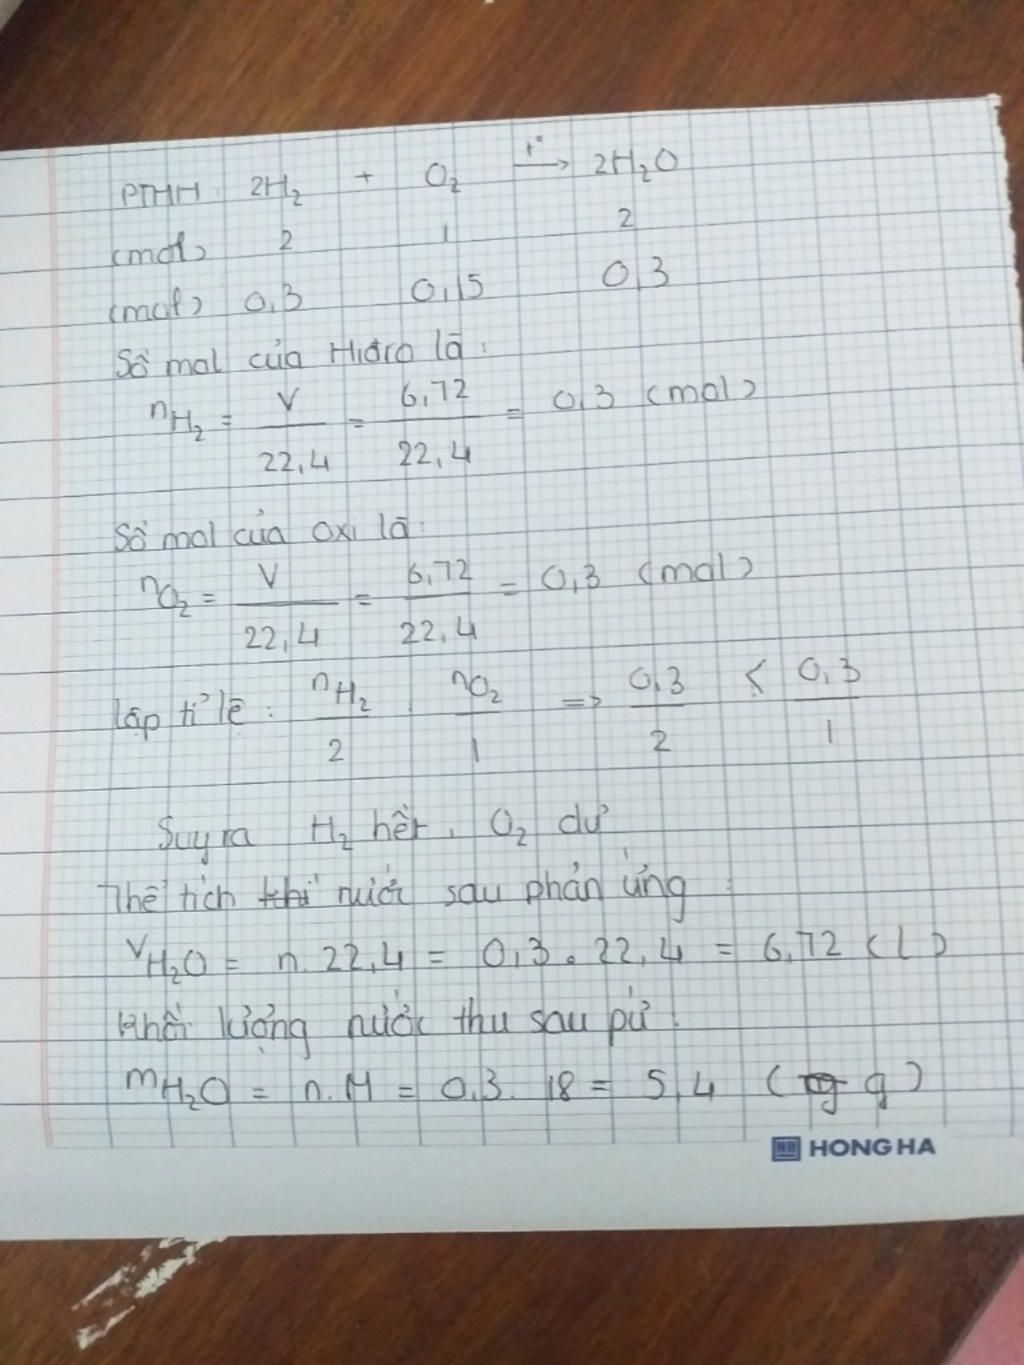 PTHH: 2H₂ + O₂ t°→ 2H₂O
(mol) 2 1 2
(mol) 0,3 0,15 0,3
Số mol của Hiđro là:
nH₂ = V/22,4 = 6,72/22,4 = 0,3 (mol)
Số mol của oxi là:
nO₂ = V/22,4 = 6,72/22,4 = 0,3 (mol)
lập tỉ lệ: nH₂/2 , nO₂/1 => 0,3/2 < 0,3/1
Suy ra H₂ hết, O₂ dư
Thể tích khí nước sau phản ứng:
VH₂O = n.22,4 = 0,3.22,4 = 6,72 (l)
khối lượng nước thu sau pứ:
mH₂O = n.M = 0,3.18 = 5,4 (g)
HONG HA